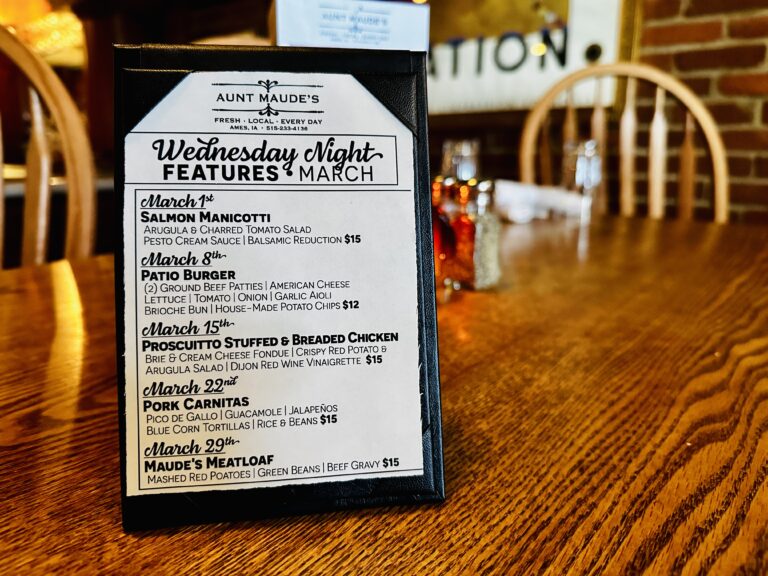 AUNT MAUDE'S
ATION.
AUNT MAUDE'S
FRESH · LOCAL · EVERY DAY
AMES, IA · 515-233-4136
Wednesday Night
FEATURES • MARCH
March 1st
SALMON MANICOTTI
ARUGULA & CHARRED TOMATO SALAD
PESTO CREAM SAUCE | BALSAMIC REDUCTION $15
March 8th
PATIO BURGER
(2) GROUND BEEF PATTIES | AMERICAN CHEESE
LETTUCE | TOMATO | ONION | GARLIC AIOLI
BRIOCHE BUN | HOUSE-MADE POTATO CHIPS $12
March 15th
PROSCUITTO STUFFED & BREADED CHICKEN
BRIE & CREAM CHEESE FONDUE | CRISPY RED POTATO &
ARUGULA SALAD | DIJON RED WINE VINAIGRETTE $15
March 22nd
PORK CARNITAS
PICO DE GALLO | GUACAMOLE | JALAPEÑOS
BLUE CORN TORTILLAS | RICE & BEANS $15
March 29th
MAUDE'S MEATLOAF
MASHED RED POATOES | GREEN BEANS | BEEF GRAVY $15